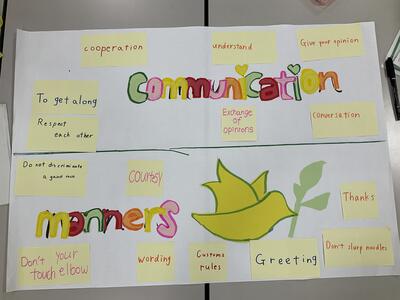 cooperation
understand
Give your opinion
Communication
To get along
Respect
each other
Exchange
of
opinions
conversation
Do not discriminate
COURTSY
manners
Thanks
Don't your
touch elbow
wording
Customs
rules
Greeting
Don't slurp noodles